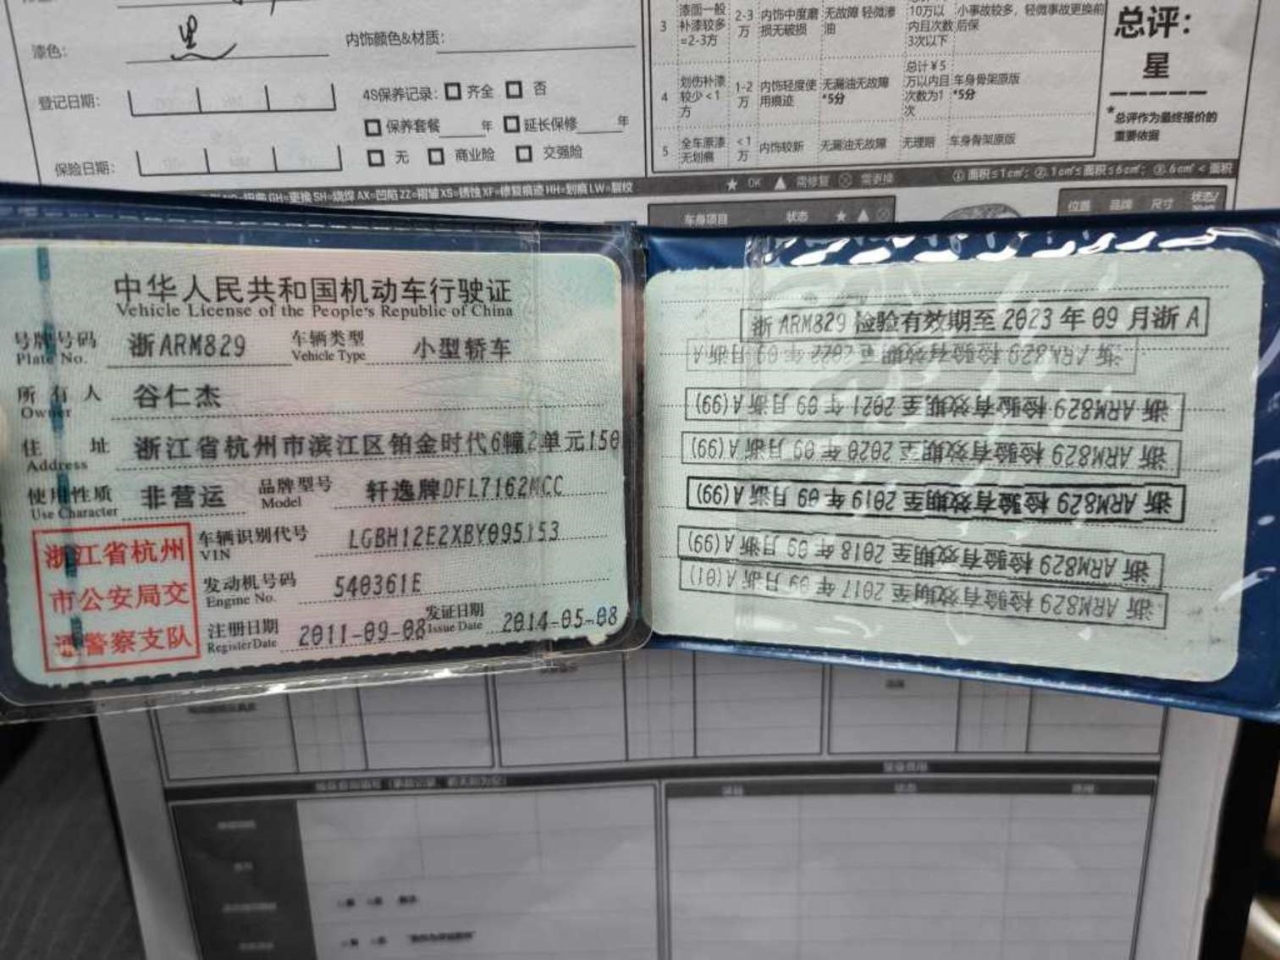 漆色：
黑
内饰颜色&材质：
登记日期：
4S保养记录： 齐全 否
保养套餐 年 延长保修 年
保险日期：
无 商业险 交强险
3 漆面一般 补漆较多 =2-3方 2-3万 内饰中度磨损无破损 无故障 轻微渗油 10万以内且次数3次以下 小事故较多，轻微事故更换前后保
4 划伤补漆较少<1方 1-2万 内饰轻度使用痕迹 无漏油无故障 *5分 总计¥5万以内且次数为1次 车身骨架原版 *5分
5 全车原漆无划痕 <1万 内饰较新 无漏油无故障 无理赔 车身骨架原版
总评：
星
*总评作为最终报价的重要依据
GH=更换 SH=烧焊 AX=凹陷 ZZ=褶皱 XS=锈蚀 XF=修复痕迹 HH=划痕 LW=裂纹
★ OK ▲ 需修复 ⊗ 需更换
车身项目 状态
位置 品牌 尺寸 状态/
中华人民共和国机动车行驶证
Vehicle License of the People's Republic of China
号牌号码 浙ARM829 车辆类型 小型轿车
Plate No. Vehicle Type
所有人 谷仁杰
Owner
住址 浙江省杭州市滨江区铂金时代6幢2单元150
Address
使用性质 非营运 品牌型号 轩逸牌DFL7162MCC
Use Character Model
浙江省杭州市公安局交通警察支队
车辆识别代号 LGBH12E2XBY095153
VIN
发动机号码 540361E
Engine No.
注册日期 2011-09-08 发证日期 2014-05-08
Register Date Issue Date
浙ARM829 检验有效期至2023年09月浙A
浙ARM829 检验有效期至2022年09月浙A
浙ARM829 检验有效期至2021年09月浙A(99)
浙ARM829 检验有效期至2020年09月浙A(99)
浙ARM829 检验有效期至2019年09月浙A(99)
浙ARM829 检验有效期至2018年09月浙A(99)
浙ARM829 检验有效期至2017年09月浙A(01)